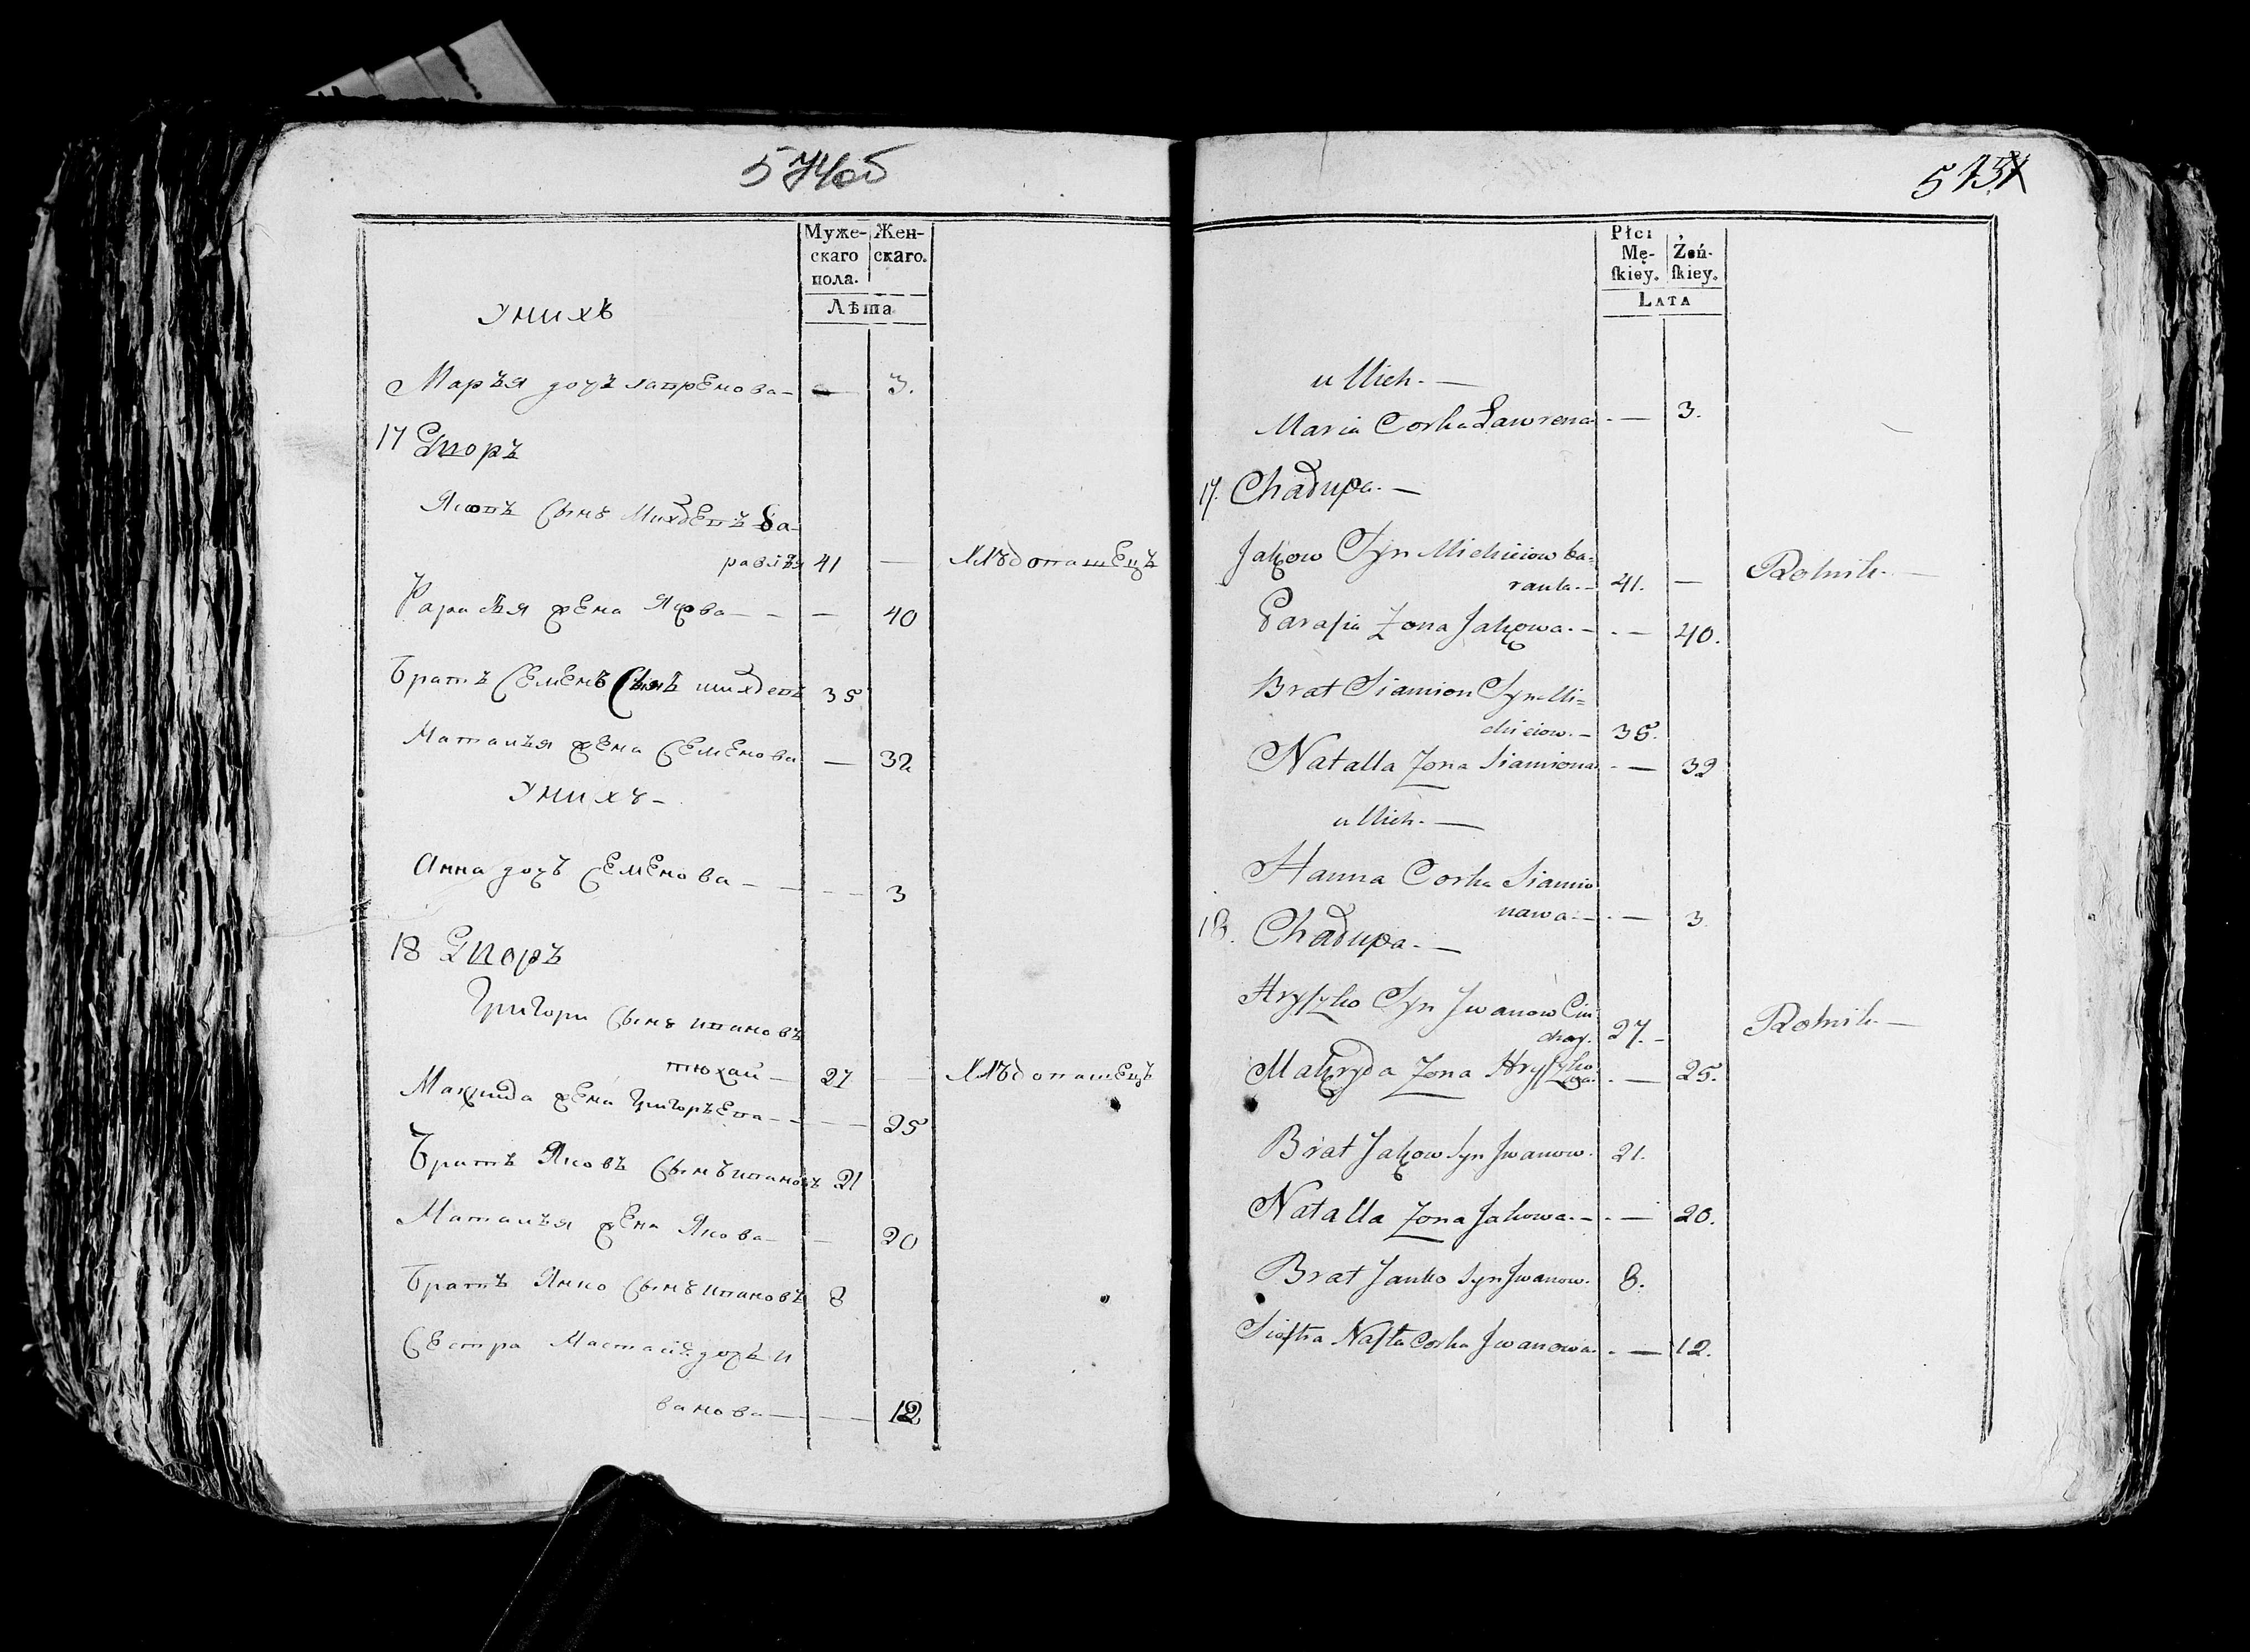 574об
Муже-
скаго
пола.
Жен-
скаго.
Лѣта
У нихъ
Марья дочь лавренова — — 3.
17 Дворъ
Яковъ сынъ Михѣевъ ба-
равка 41 — Хлѣбопашецъ
Парасья жена Якова — — — 40
Братъ Семенъ сынъ михѣевъ 35
Наталья жена Семенова — 32
У нихъ —
Анна дочь Семенова — — — 3
18 Дворъ
Григори сынъ ивановъ
тюхай — 27 — Хлѣбопашецъ
Макрида жена Григорьева — — — 25
Братъ Яковъ сынъ ивановъ 21
Наталья жена Якова — — 20
Братъ Янко сынъ ивановъ 8
Сестра Настасія дочь и
ванова — — — 12
Płci
Mę-
ſkiey.
Żeń-
ſkiey.
LATA
u Nich. —
Maria Corka Ławrena. — 3.
17. Chałupa. —
Jakow Syn Michieiow ba=
rauka. — 41. — Rolnik. —
Paraſia Zona Jakowa. — . — 40.
Brat Siamion Syn Mi=
chieiow. — 35.
Natalla Zona Siamiona. — 32
u Nich. —
Hanna Corka Siamio
nawa. — . — 3
18. Chałupa. —
Hryſzko Syn Jwanow Ciu
chay. 27. — Rolnik. —
Makryda Zona Hryſzko
wa. . — 25.
Brat Jakow Syn Jwanow. 21.
Natalla Zona Jakowa. — . — 20.
Brat Janko Syn Jwanow. 8.
Sioſtra Naſta Corka Jwanowa. . — 12.